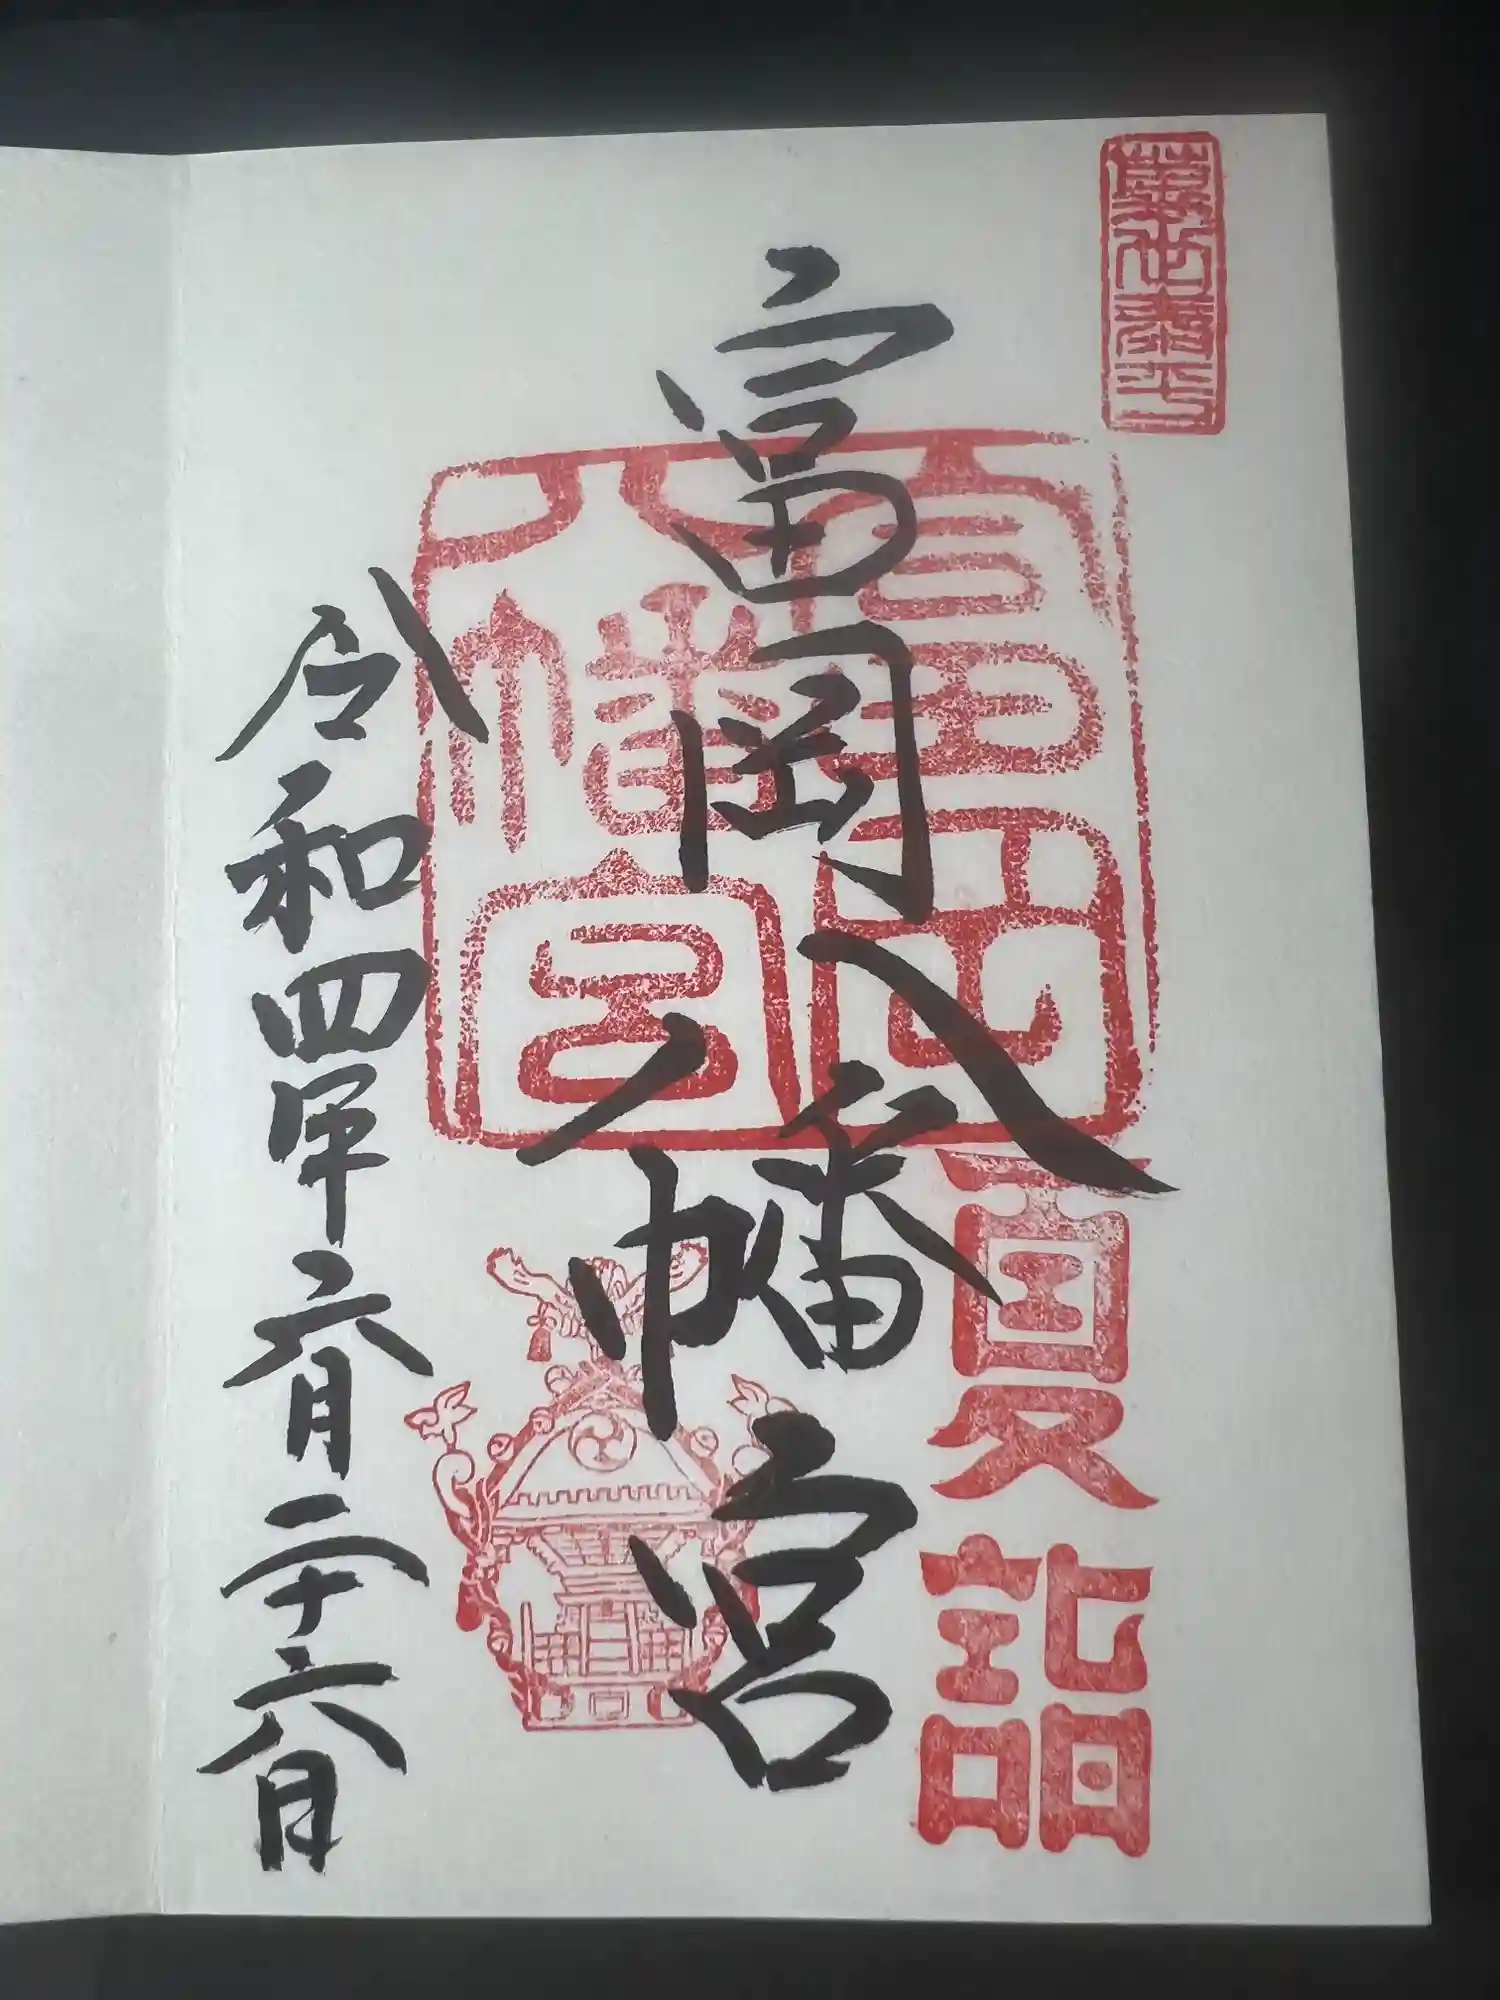 富岡八幡宮
夏詣
富岡
八幡宮
令和四年六月二十六日